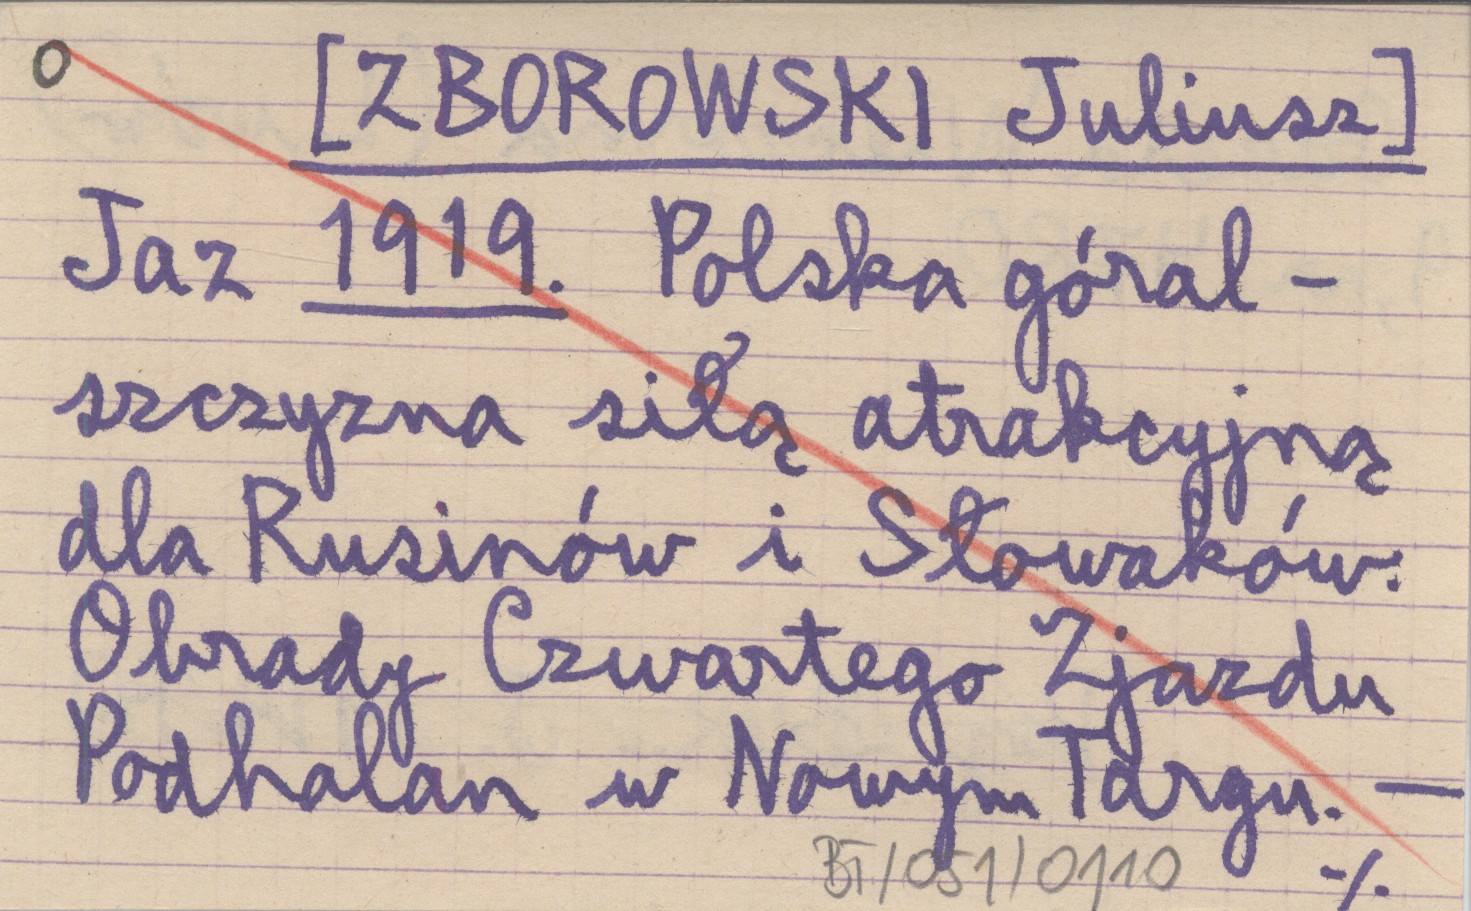 [ZBOROWSKI Juliusz]
Jaz 1919. Polska góral-
szczyzna siłą atrakcyjną
dla Rusinów i Słowaków:
Obrady Czwartego Zjazdu
Podhalan w Nowym Targu. —
BT/051/0110 -/.